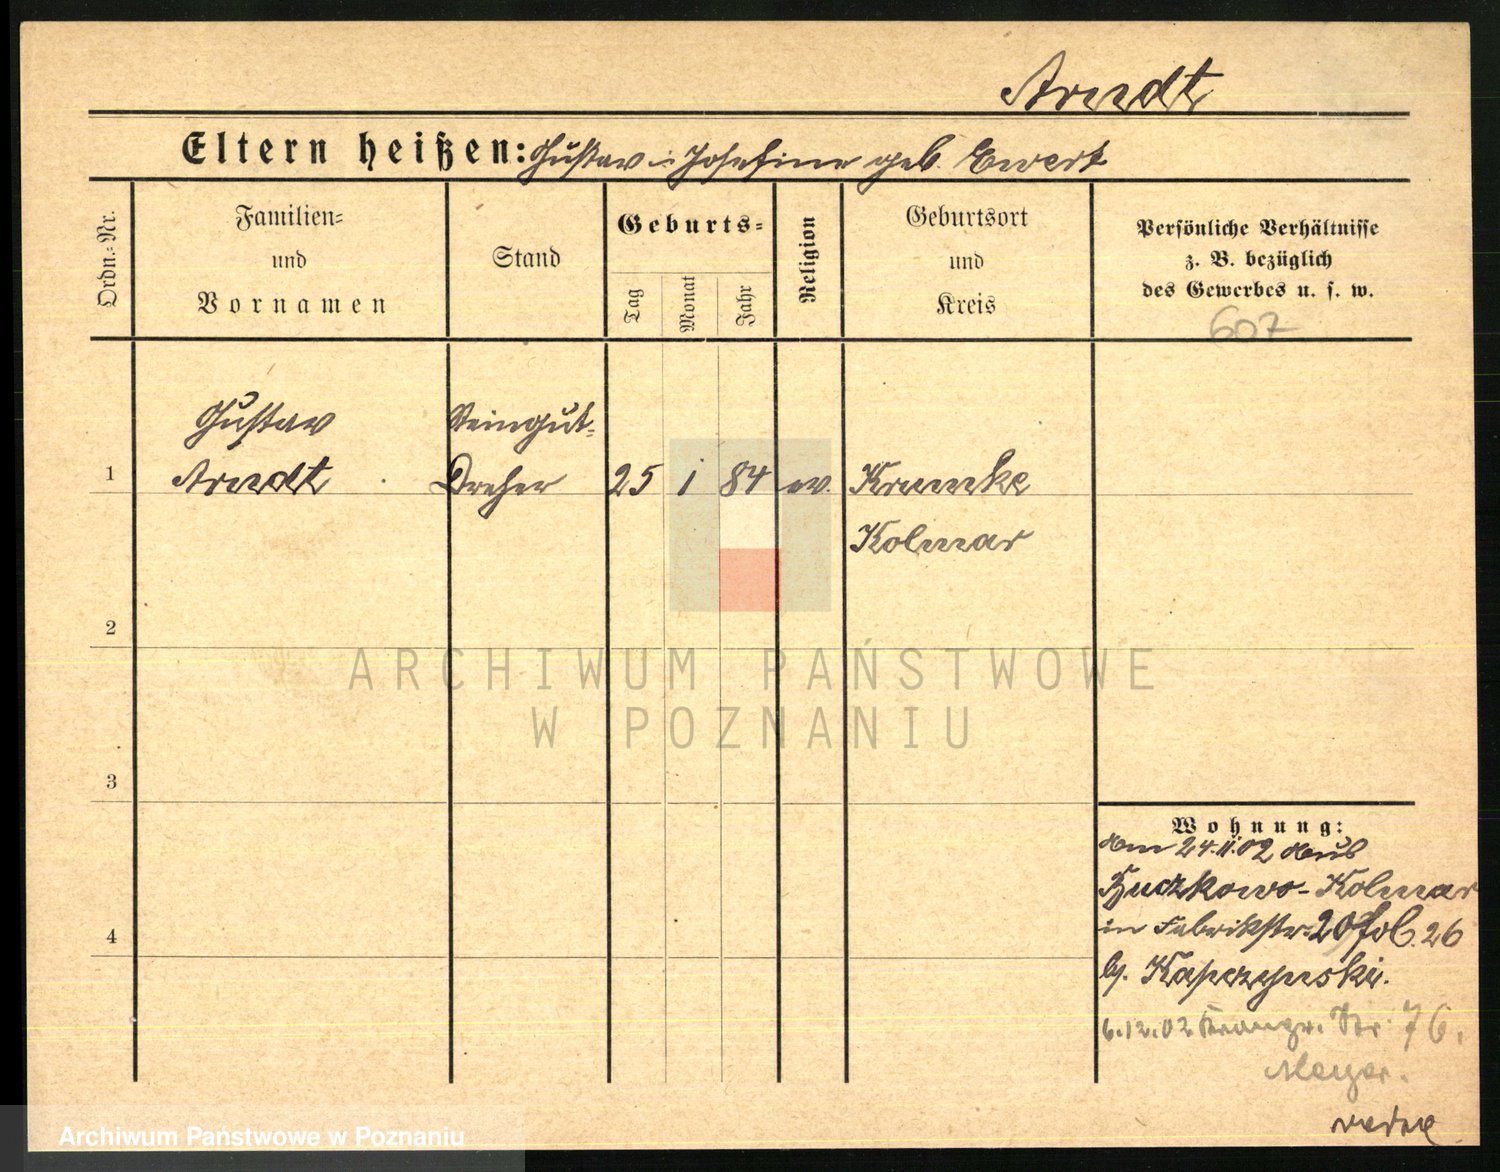 Arndt
Eltern heißen: Gustav u. Josefine geb. Ewert
Ordn.-Nr.
Familien-
und
Vornamen
Stand
Geburts-
Tag
Monat
Jahr
Religion
Geburtsort
und
Kreis
Persönliche Verhältnisse
z. B. bezüglich
des Gewerbes u. s. w.
607
Gustav
Steingut-
1 Arndt Dreher 25 1 84 ev.
Kolmar
2
ARCHIWUM PAŃSTWOWE
W POZNANIU
3
Wohnung:
24.11.02 aus
Kolmar
4 in Fabrikstr. 20 26
b. Kaperzynski.
6.12.02 Str. 76.
Meyer.
Archiwum Państwowe w Poznaniu